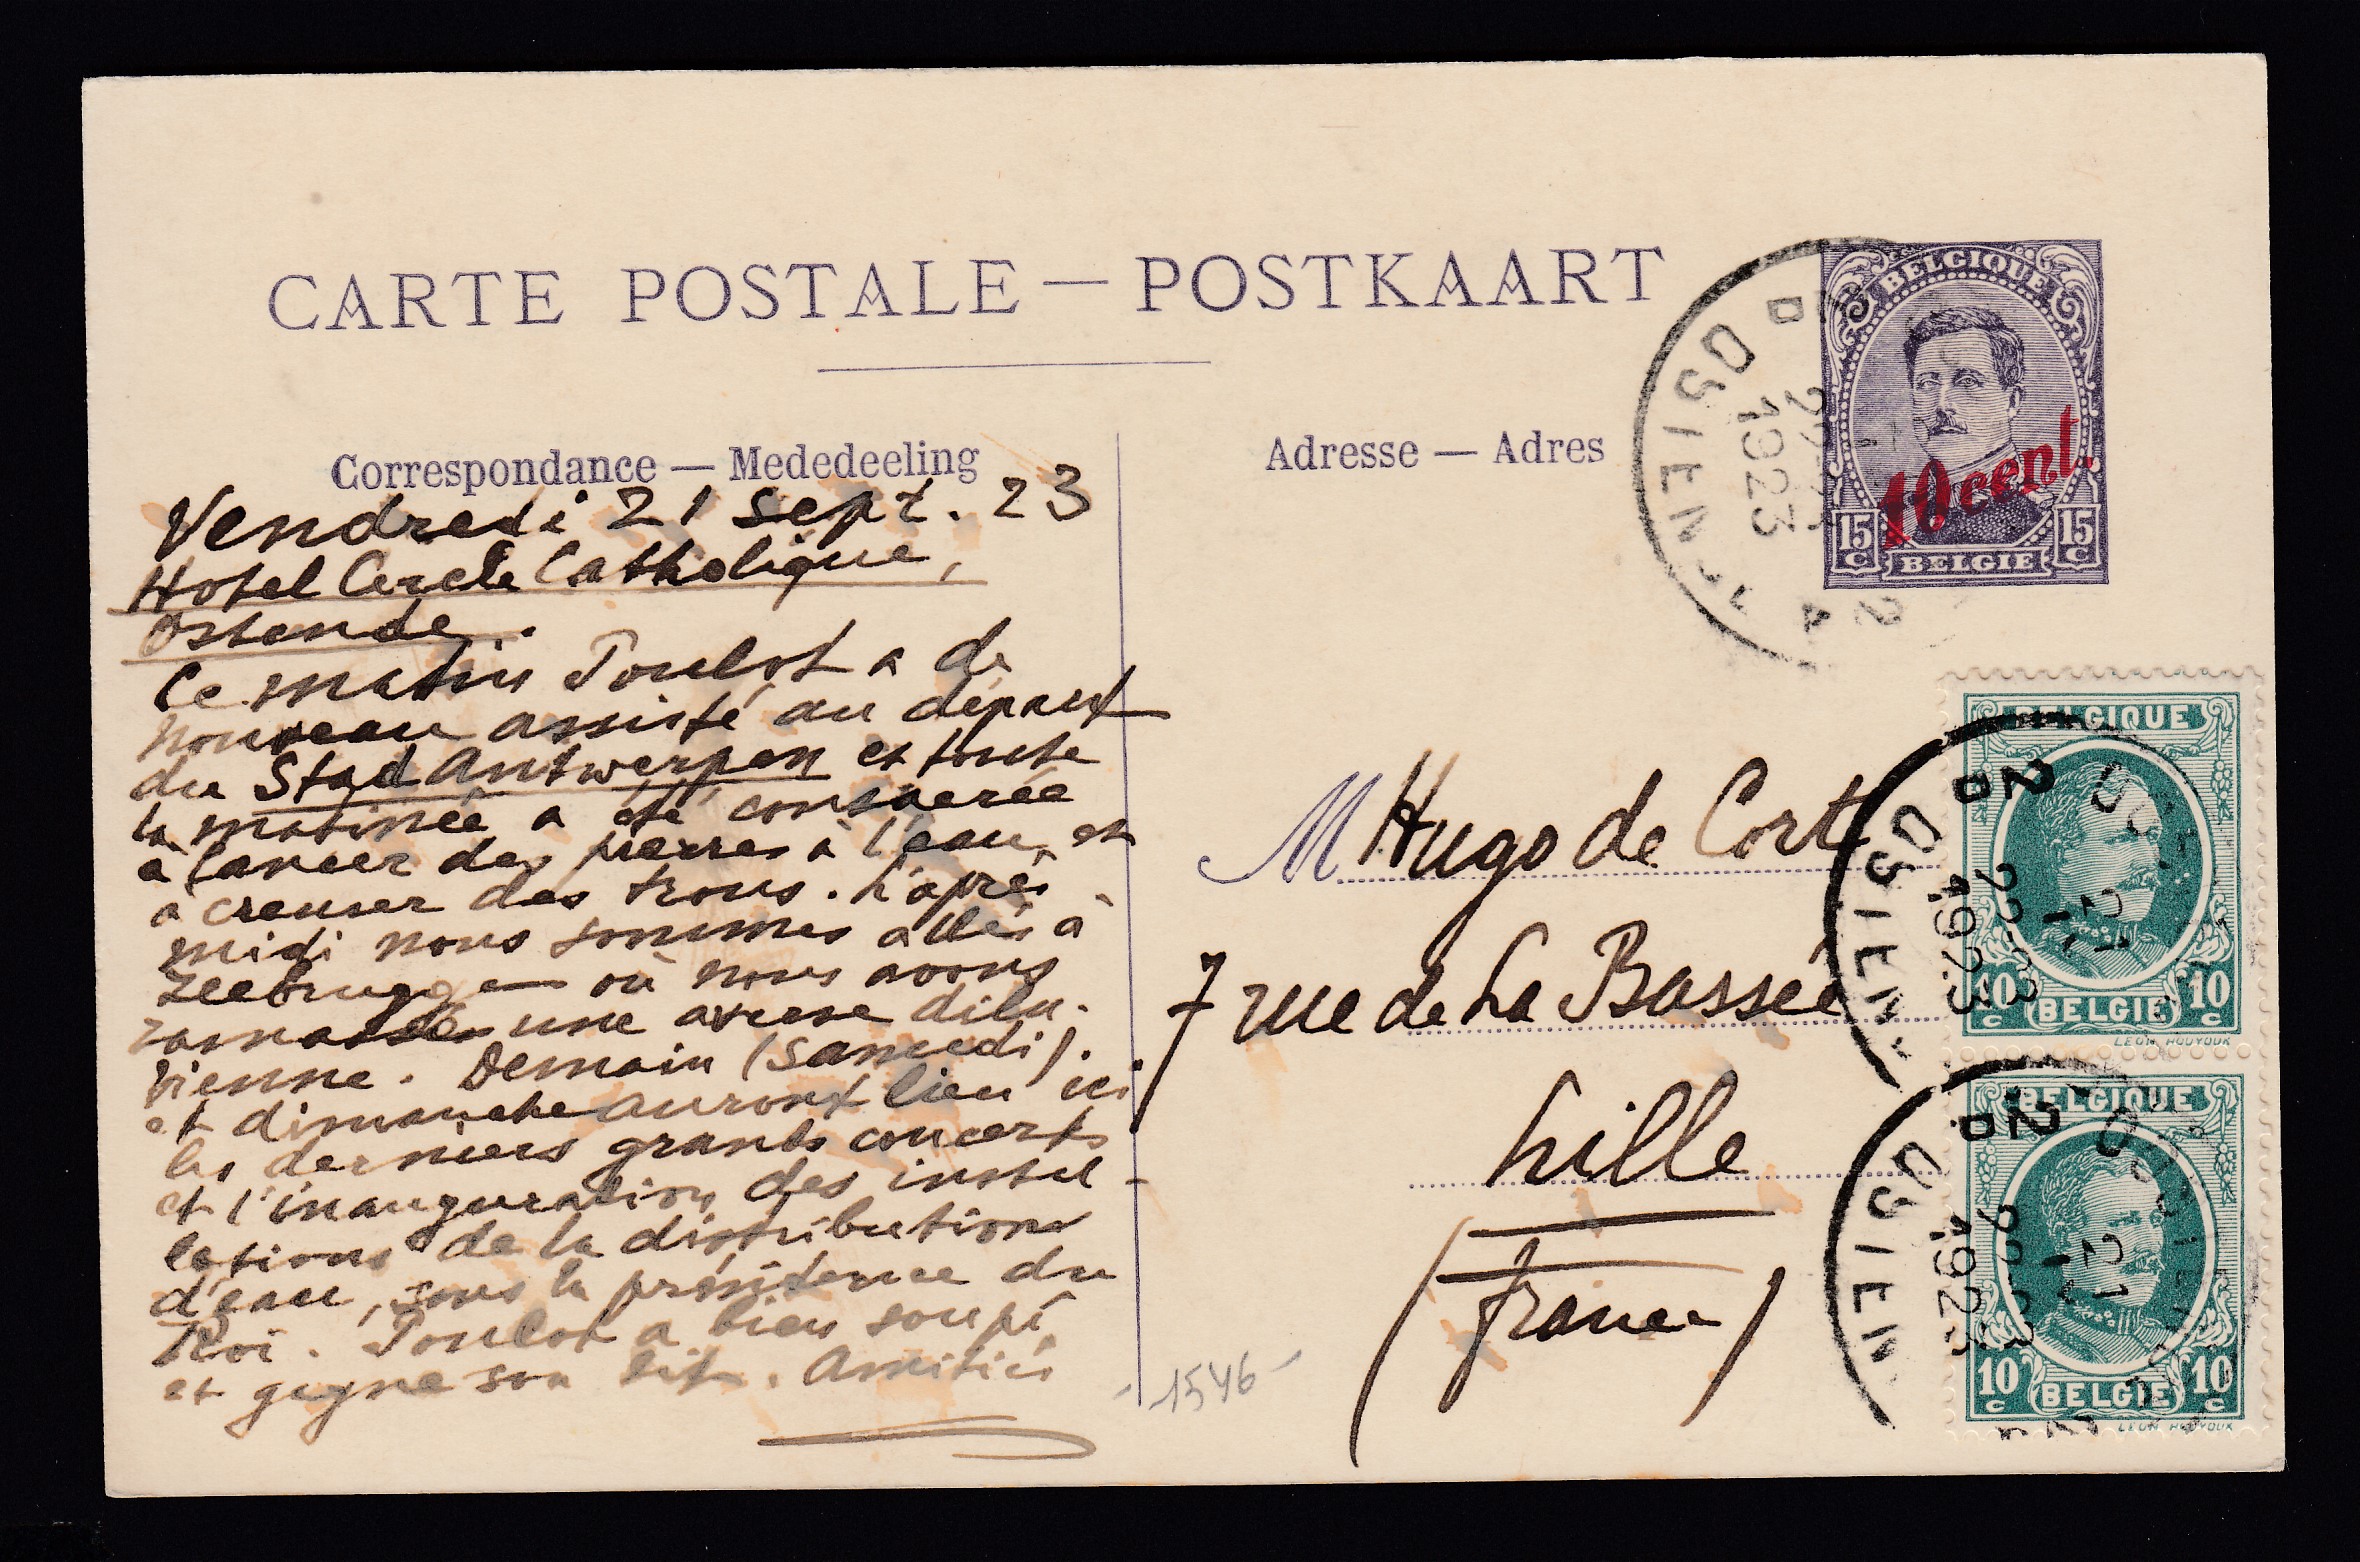 CARTE POSTALE — POSTKAART
Correspondance — Mededeeling
Vendredi 21 sept. 23
Hotel Cercle Catholique,
Ostende.
Ce matin Poulot a de
nouveau assisté au départ
du Stad Antwerpen et toute
la matinée a été consacrée
à lancer des pierres à l'eau, et
à creuser des trous. L'après
midi nous sommes allés à
Zeebrugge où nous avons
ramassés une averse dilu-
vienne. Demain (samedi)
et dimanche auront lieu ici
les derniers grands concerts
et l'inauguration des instal-
lations de la distribution
d'eau, sous la présidence du
Roi. Poulot a bien soupé
et gagne son lit. Amitiés
Adresse — Adres
M Hugo de Cort
7 rue de La Bassée
Lille
(France)
-1546-
BELGIQUE
10 cent.
15 C
15 C
BELGIE
1923
BELGIQUE
10 C
BELGIE
10 C
LEON HOUYOUX
1923
BELGIQUE
10 C
BELGIE
10 C
LEON HOUYOUX
1923